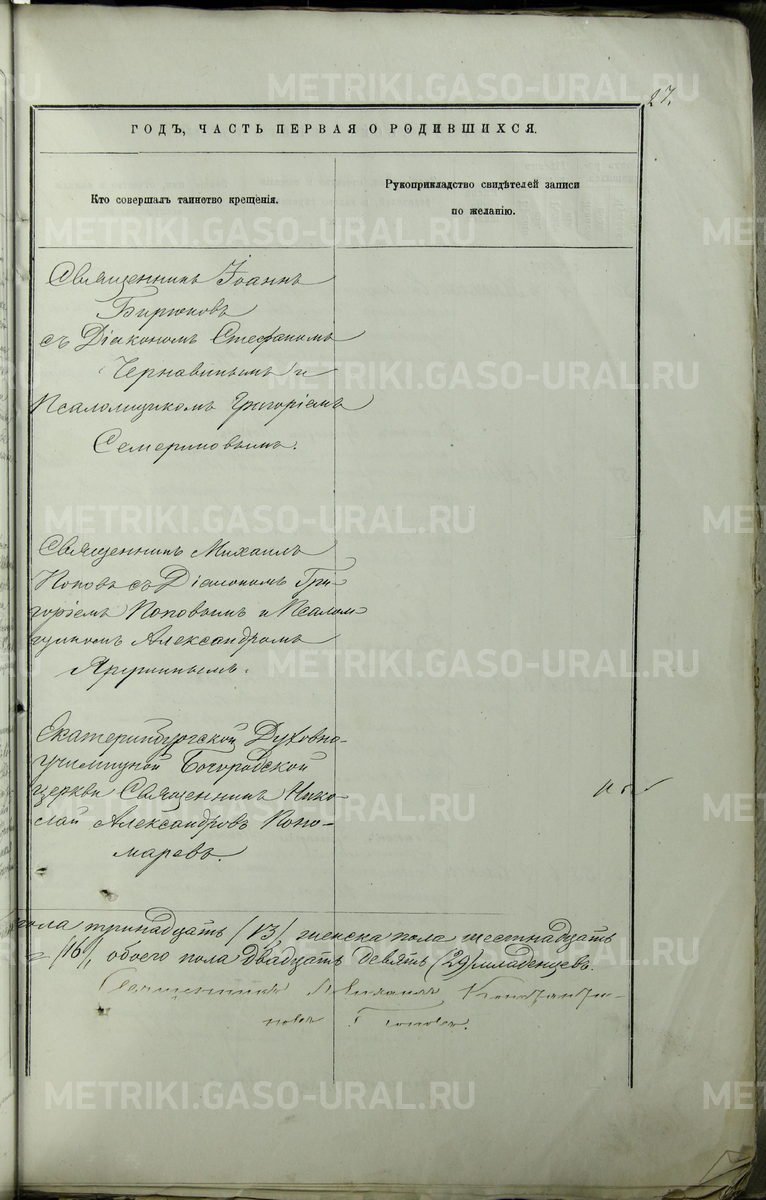 27.
ГОДЪ, ЧАСТЬ ПЕРВАЯ О РОДИВШИХСЯ.
Кто совершалъ таинство крещенія.
Рукоприкладство свидѣтелей записи
по желанію.
Священникъ Іоаннъ
Бирюковъ
съ Діакономъ Стефаномъ
Чернавинымъ и
Псаломщикомъ Григоріемъ
Семериковымъ.
Священникъ Михаилъ
Поповъ съ Діакономъ Гри-
горіемъ Поповымъ и Псалом-
щикомъ Александромъ
Яругинымъ.
Екатеринбургской Духовно-
училищной Богородской
церкви Священникъ Нико-
лай Александровъ Поно-
маревъ.
пола тринадцать /13/, женска пола шестнадцать
/16/, обоего пола двадцать девять (29) младенцевъ.
Священникъ Михаилъ Константи-
новъ Поповъ.
METRIKI.GASO-URAL.RU